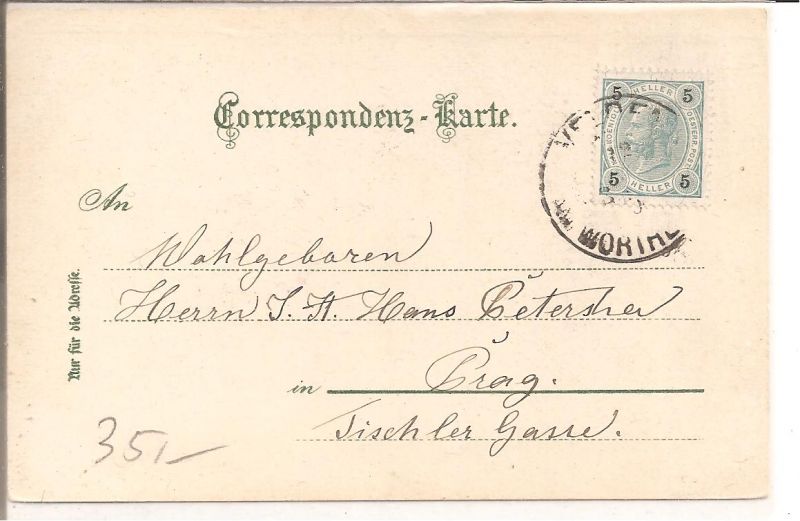 Correspondenz-Karte.
5 HELLER 5
5 HELLER 5
WÖRTHE
An
Wohlgeboren
Herrn J. St. Hans
in Prag.
Tischler Gasse.
Nur für die Adresse.
351-